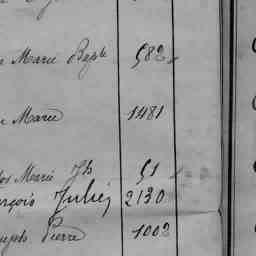 Marie Bapte 582
Marie 1481
Marie Jh 51
Julien 2130
Pierre 1002